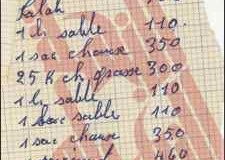 1 h sable 110.
1 sac chause 350
25 K ch. grasse 300
1 h sable 110
1 sac sable 110
1 sac chause 350
460